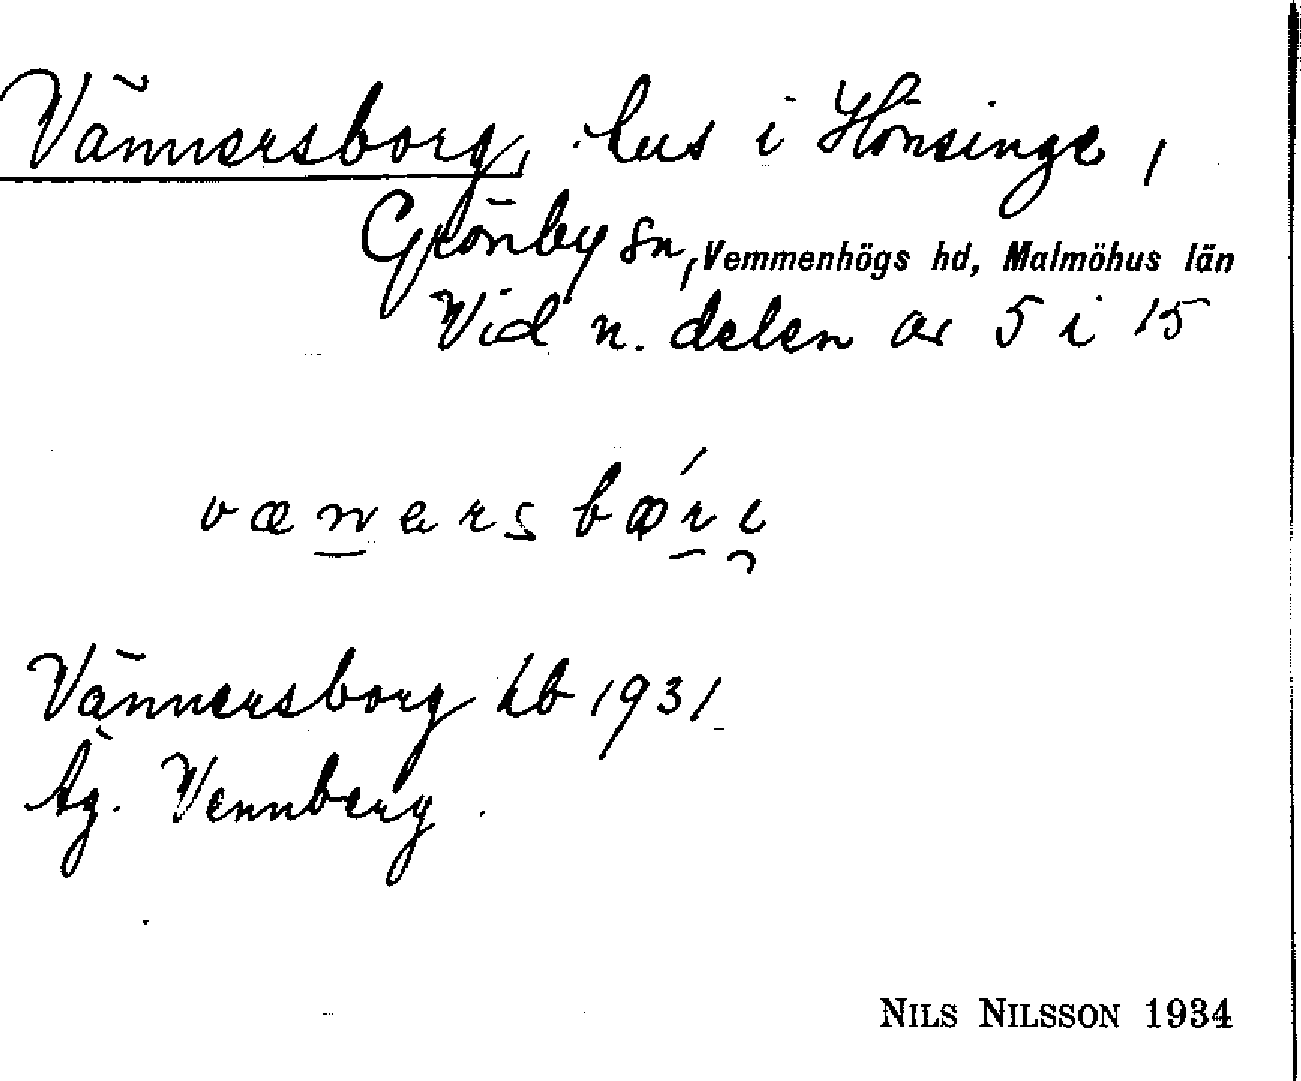 Vännersborg, hus i Hönsinge,
Grönby sn, Vemmenhögs hd, Malmöhus län
Vid n. delen av 5 i 15
Vännersborg hb 1931
Äg. Vennberg.
NILS NILSSON 1934